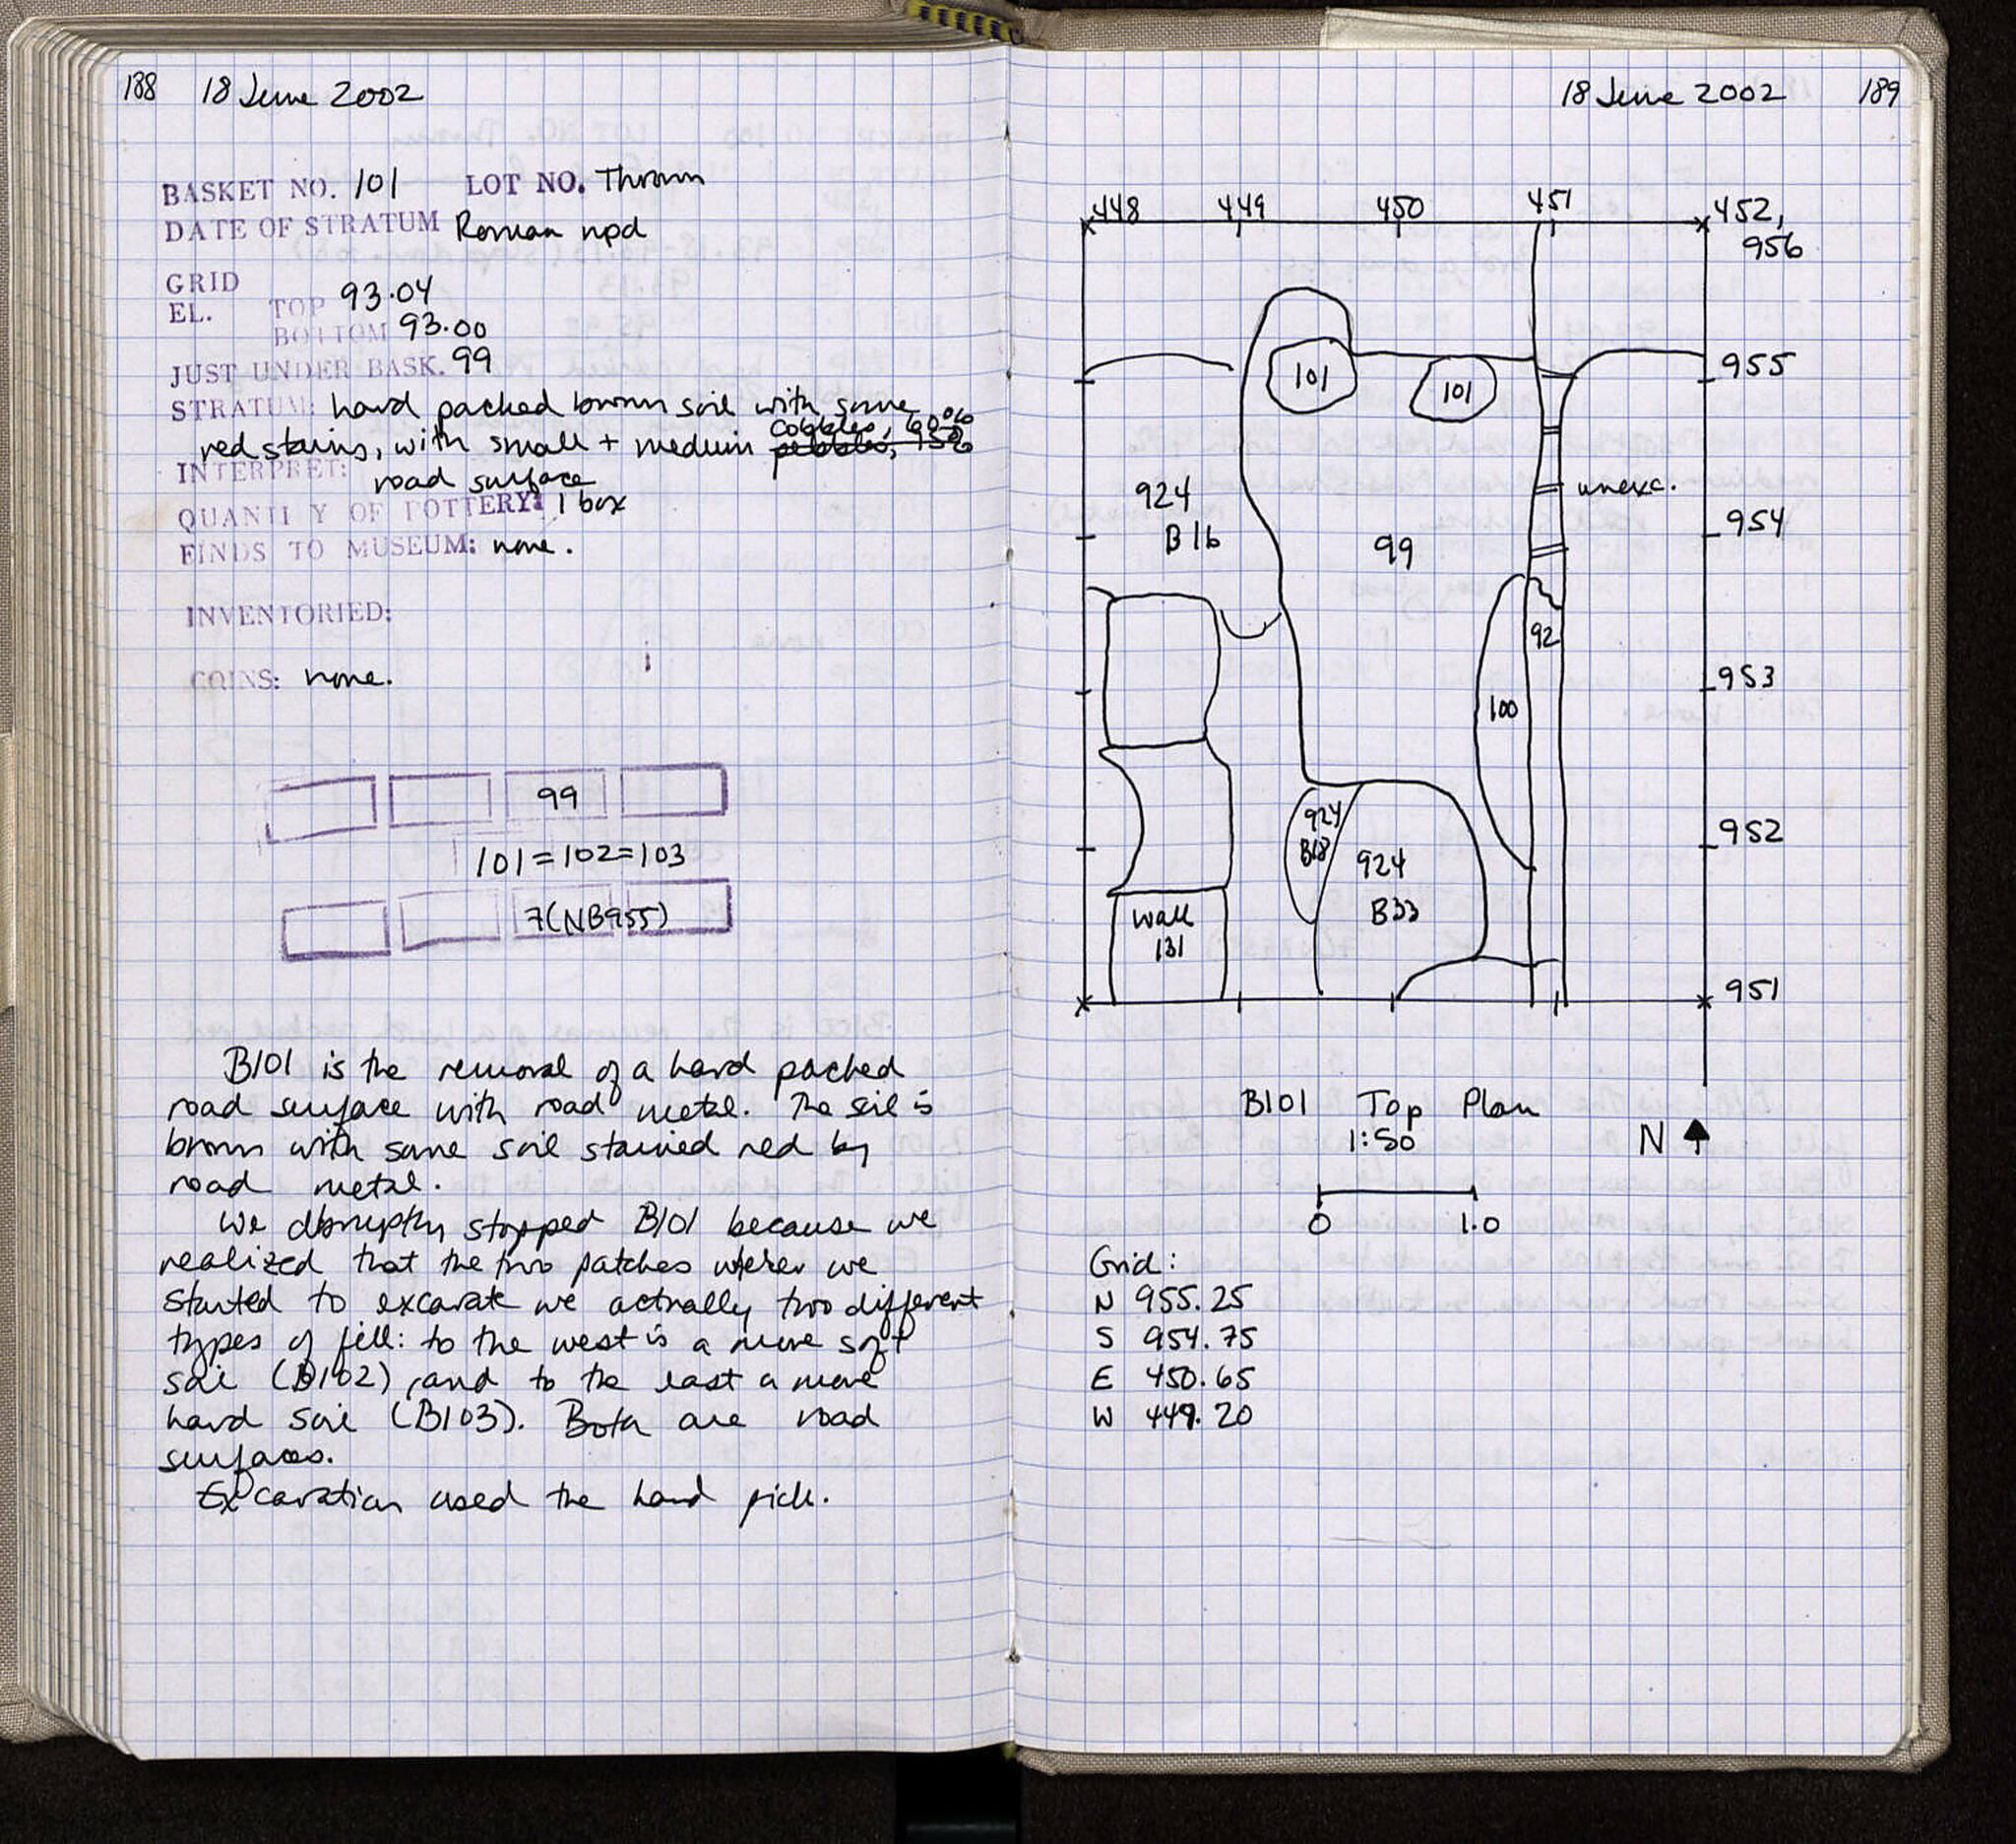 188 18 June 2002
BASKET NO. 101 LOT NO. Thrown
DATE OF STRATUM Roman npd
GRID
EL. TOP 93.04
BOTTOM 93.00
JUST UNDER BASK. 99
STRATUM: hard packed brown soil with some
red stains, with small + medium pebbles, 15% cobbles, 60%
INTERPRET: road surface
QUANTITY OF POTTERY: 1 box
FINDS TO MUSEUM: none.
INVENTORIED:
COINS: none.
99
101=102=103
7(NB955)
B101 is the removal of a hard packed
road surface with road metal. The soil is
brown with some soil stained red by
road metal.
We abruptly stopped B101 because we
realized that the two patches where we
started to excavate we actually two different
types of fill: to the west is a more soft
soil (B102), and to the east a more
hard soil (B103). Both are road
surfaces.
Excavation used the hand pick.
18 June 2002 189
448 449 450 451 452,
956
955
101 101
924
B16
99
unexc.
954
92
953
100
924
B18
924
B33
952
Wall
131
951
B101 Top Plan
1:50
N
0 1.0
Grid:
N 955.25
S 954.75
E 450.65
W 449.20